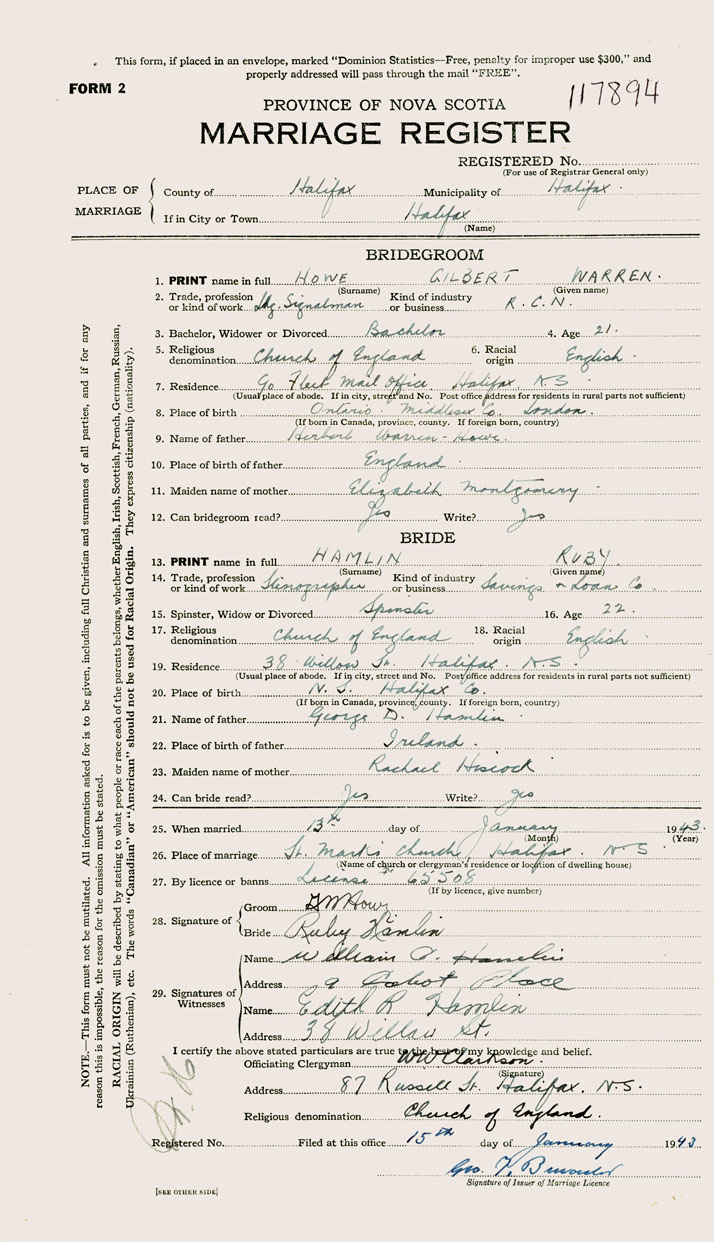 This form, if placed in an envelope, marked "Dominion Statistics—Free, penalty for improper use $300," and
properly addressed will pass through the mail "FREE".
FORM 2
117894
PROVINCE OF NOVA SCOTIA
MARRIAGE REGISTER
REGISTERED No.
(For use of Registrar General only)
PLACE OF MARRIAGE
County of Halifax Municipality of Halifax
If in City or Town Halifax
(Name)
BRIDEGROOM
1. PRINT name in full HOWE GILBERT WARREN.
(Surname) (Given name)
2. Trade, profession or kind of work Ldg. Signalman Kind of industry or business R.C.N.
3. Bachelor, Widower or Divorced Bachelor 4. Age 21.
5. Religious denomination Church of England 6. Racial origin English
7. Residence Fleet Mail Office, Halifax, N.S
(Usual place of abode. If in city, street and No. Post office address for residents in rural parts not sufficient)
8. Place of birth Ontario. Middlesex Co. London.
(If born in Canada, province, county. If foreign born, country)
9. Name of father Herbert Warren-Howe.
10. Place of birth of father England
11. Maiden name of mother Elizabeth Montgomery
12. Can bridegroom read? Yes Write? Yes
BRIDE
13. PRINT name in full HAMLIN RUBY.
(Surname) (Given name)
14. Trade, profession or kind of work Stenographer Kind of industry or business Savings & Loan Co.
15. Spinster, Widow or Divorced Spinster 16. Age 22.
17. Religious denomination Church of England 18. Racial origin English
19. Residence 38 Willow St. Halifax. N.S
(Usual place of abode. If in city, street and No. Post office address for residents in rural parts not sufficient)
20. Place of birth N.S. Halifax Co.
(If born in Canada, province, county. If foreign born, country)
21. Name of father George D. Hamlin
22. Place of birth of father Ireland.
23. Maiden name of mother Rachael Hiscock
24. Can bride read? Yes Write? Yes
25. When married 13th day of January 1943.
(Month) (Year)
26. Place of marriage St. Mark's Church, Halifax. N-S
(Name of church or clergyman's residence or location of dwelling house)
27. By licence or banns License 65508
(If by licence, give number)
28. Signature of
Groom GWHowe
Bride Ruby Hamlin
29. Signatures of Witnesses
Name William A. Hamlin
Address 9 Cabot Place
Name Edith R Hamlin
Address 38 Willow St.
I certify the above stated particulars are true to the best of my knowledge and belief.
Officiating Clergyman WW Clarkson
(Signature)
Address 87 Russell St. Halifax. N.S.
Religious denomination Church of England.
Registered No. Filed at this office 15th day of January 1943.
Geo.
Signature of Issuer of Marriage Licence
[SEE OTHER SIDE]
NOTE.—This form must not be mutilated. All information asked for is to be given, including full Christian and surnames of all parties, and if for any
reason this is impossible, the reason for the omission must be stated.
RACIAL ORIGIN will be described by stating to what people or race each of the parents belongs, whether English, Irish, Scottish, French, German, Russian,
Ukrainian (Ruthenian), etc. The words "Canadian" or "American" should not be used for Racial Origin. They express citizenship (nationality).